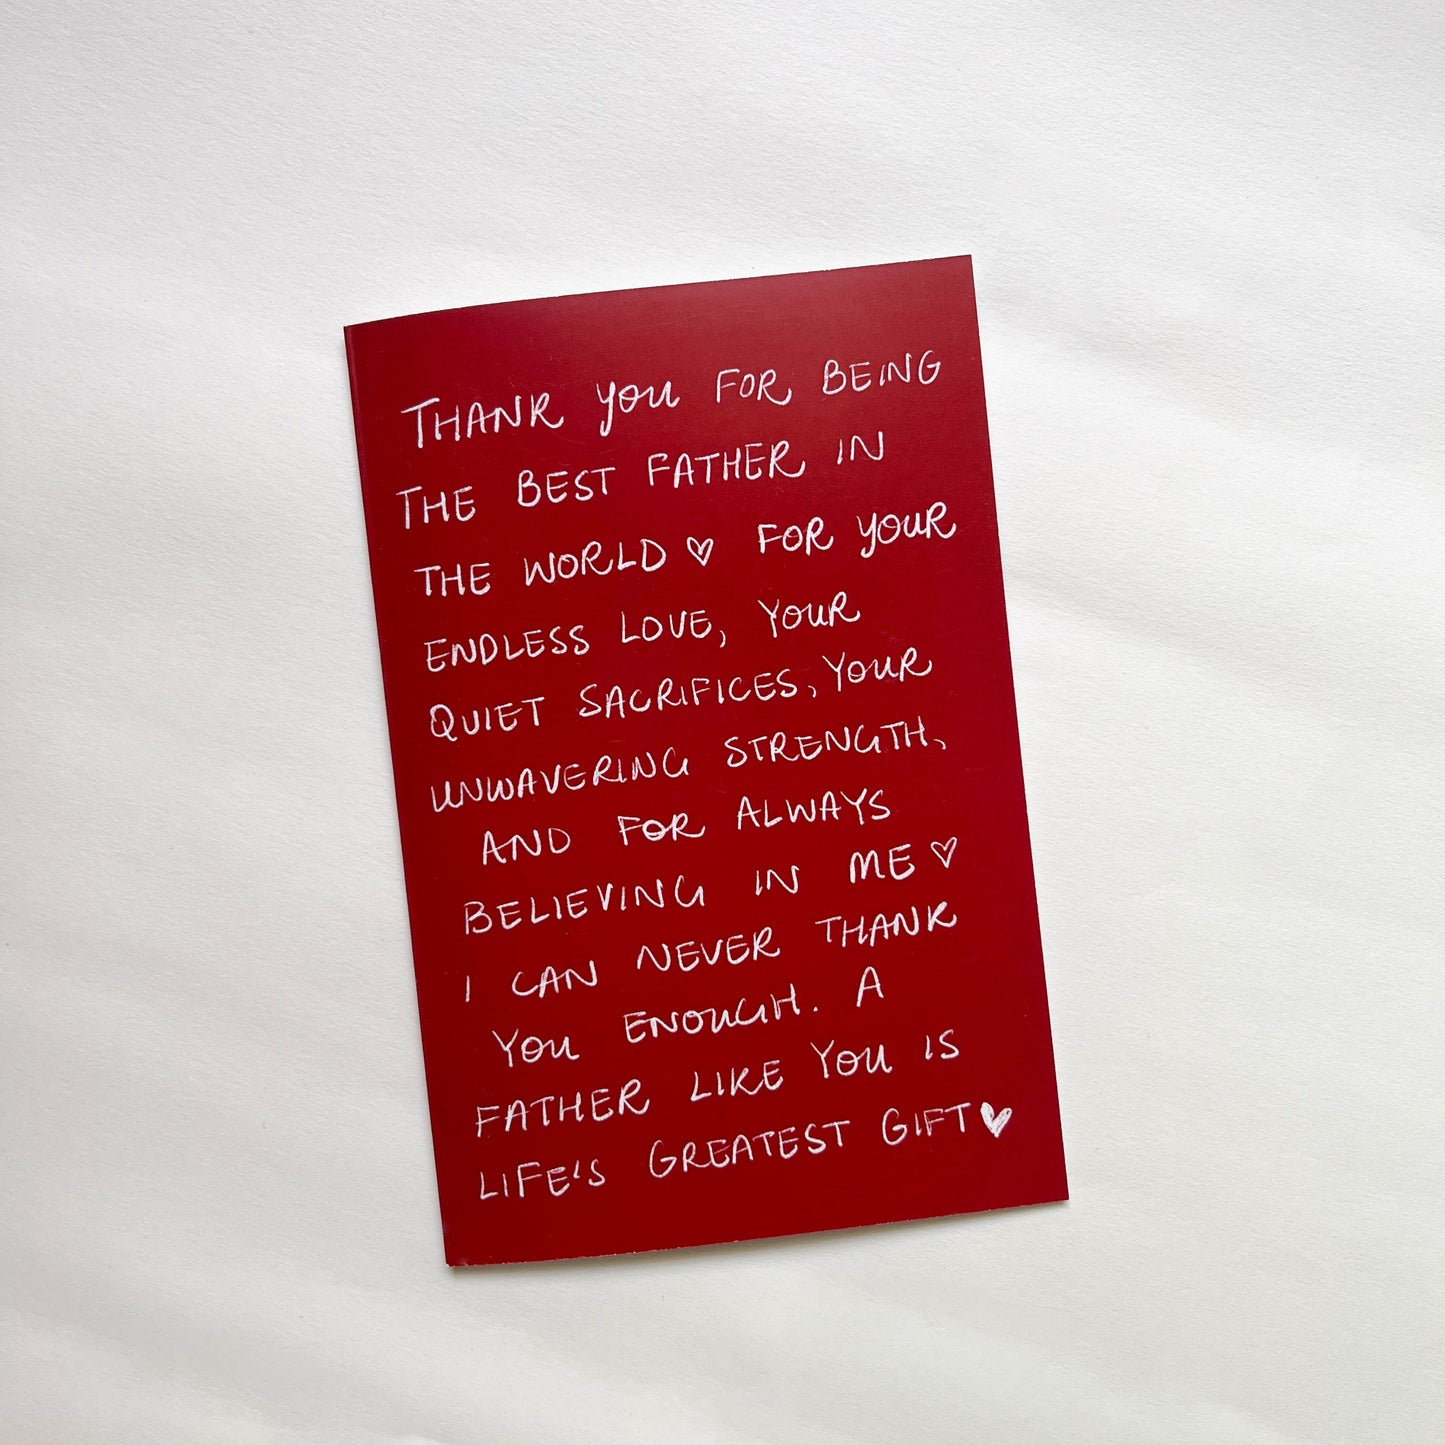 THANK YOU FOR BEING
THE BEST FATHER IN
THE WORLD ♡ FOR YOUR
ENDLESS LOVE, YOUR
QUIET SACRIFICES, YOUR
UNWAVERING STRENGTH,
AND FOR ALWAYS
BELIEVING IN ME ♡
I CAN NEVER THANK
YOU ENOUGH. A
FATHER LIKE YOU IS
LIFE'S GREATEST GIFT ♥